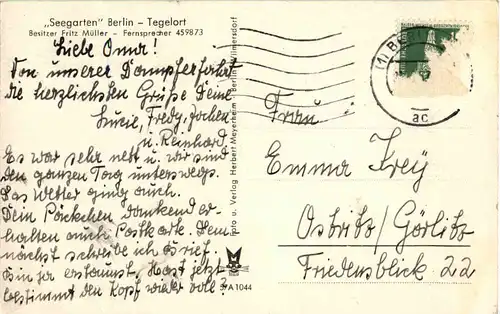 „Seegarten" Berlin – Tegelort
Besitzer Fritz Müller – Fernsprecher 459873
Liebe Oma!
Von unserer Dampferfahrt
die herzlichsten Grüße Deine
Lucie, Fredy, Jochen
u. Reinhard
Es war sehr nett u. wir sind
den ganzen Tag unterwegs.
Das Wetter ging auch.
Dein Päckchen dankend er-
halten auch Postkarte. Dem-
nächst schreibe ich
bin ja erstaunt. Hast jetzt
bestimmt den Kopf wieder voll?
Foto u. Verlag Herbert Meyerheim, Berlin-Wilmersdorf
A 1044
(1) B
ac
Frau
Emma Frey
Ostritz/Görlitz
Friedensblick 22